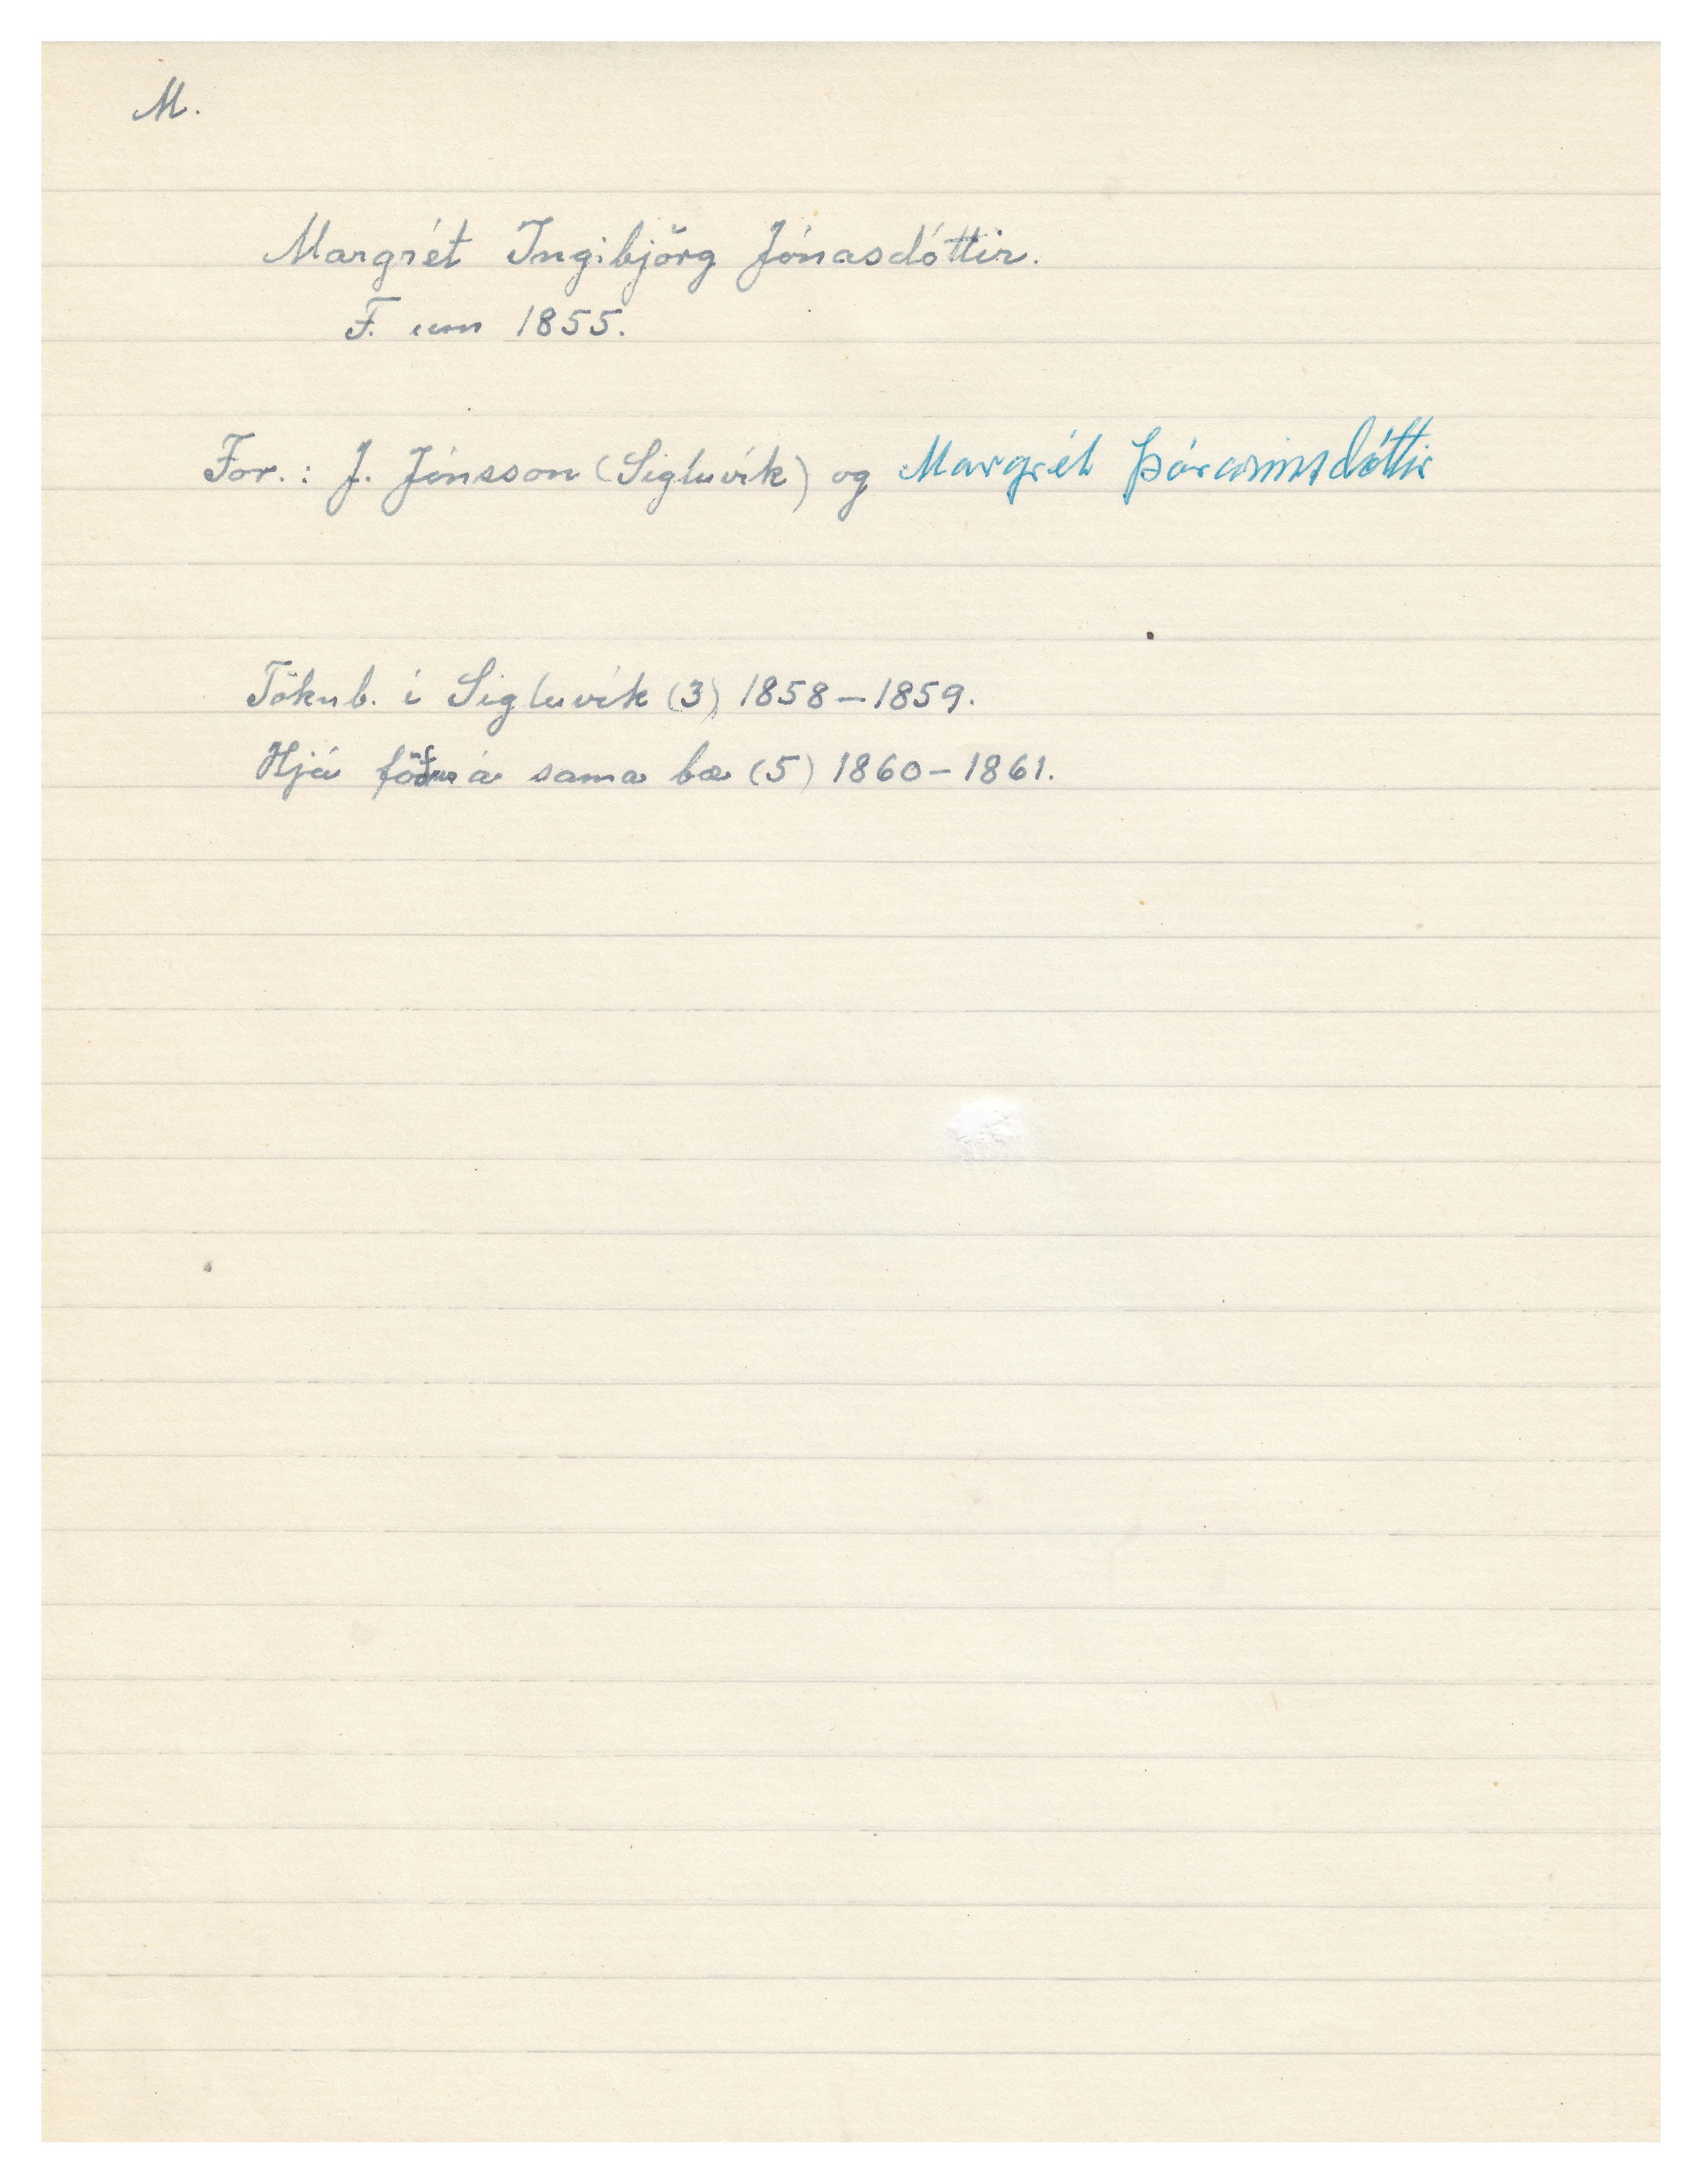 M.
Margrét Ingibjörg Jónasdóttir.
F. um 1855.
For.: J. Jónsson (Sigluvík) og Margrét Þórarinsdóttir
Tökub. í Sigluvík (3) 1858-1859.
Hjá föður á sama bæ (5) 1860-1861.